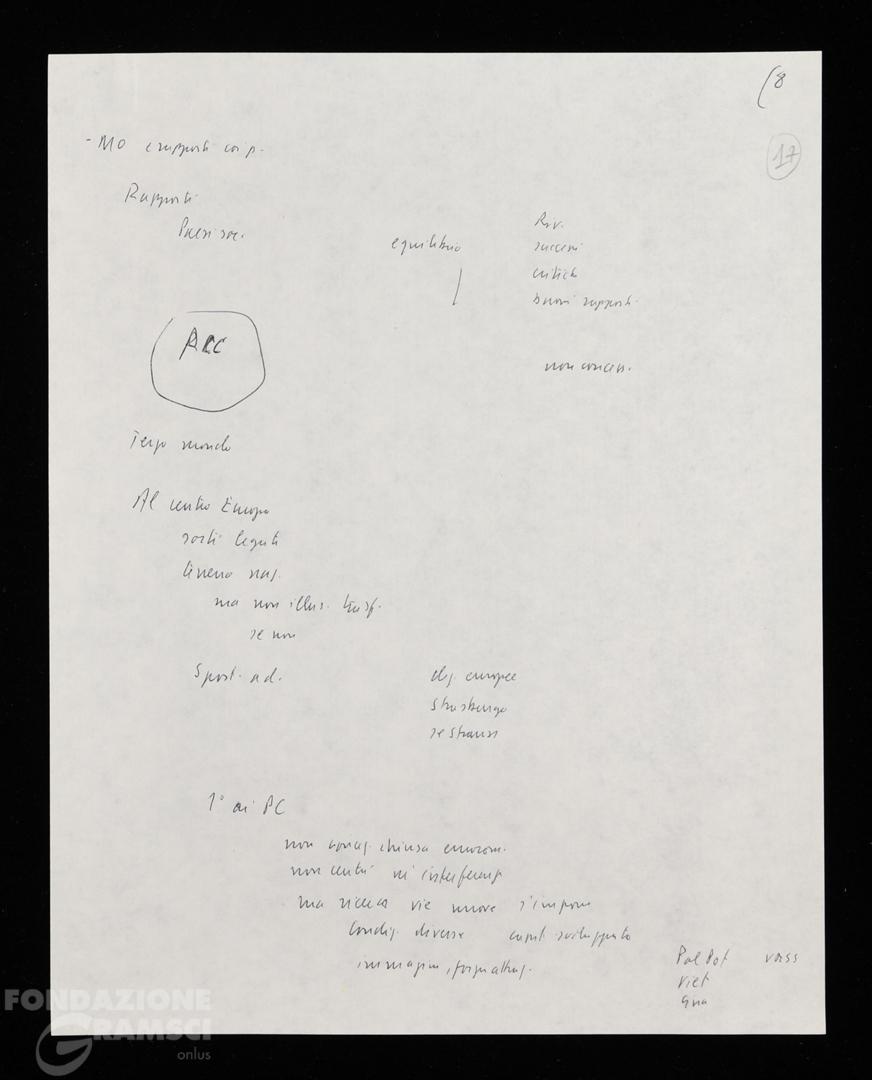 (8
17
- MO e rapporti coi p.
Rapporti
Paesi soc.
equilibrio
Riv.
successi
critiche
buoni rapporti
non concess.
PCC
Terzo mondo
Al centro Europa
sorti legati
terreno naz.
ma non illus. trasf.
se non
Spost. a d.
elez. europee
Strasburgo
se Strauss
1° ai PC
non concez. chiusa eurocom.
non centri né interferenz.
ma ricerca vie nuove s'impone
Condiz. diverse capit. sviluppato
immagine, forza attraz.
Pol Pot vass
Viet
Cina
FONDAZIONE
GRAMSCI
onlus